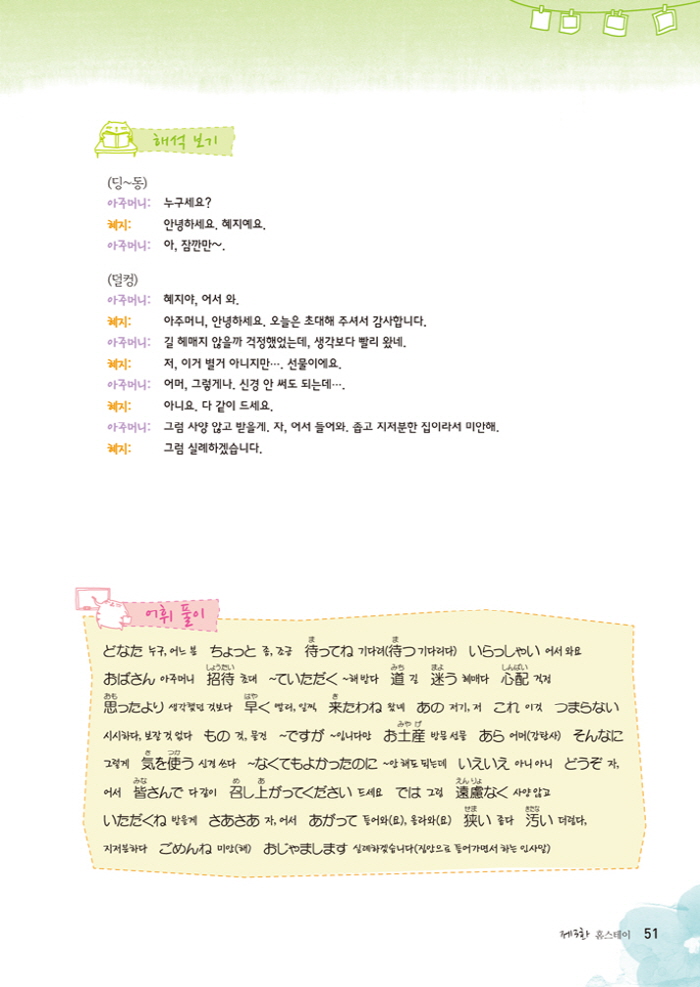 해석 보기
(딩~동)
아주머니: 누구세요?
혜지: 안녕하세요. 혜지예요.
아주머니: 아, 잠깐만~.
(덜컹)
아주머니: 혜지야, 어서 와.
혜지: 아주머니, 안녕하세요. 오늘은 초대해 주셔서 감사합니다.
아주머니: 길 헤매지 않을까 걱정했었는데, 생각보다 빨리 왔네.
혜지: 저, 이거 별거 아니지만…. 선물이에요.
아주머니: 어머, 그렇게나. 신경 안 써도 되는데….
혜지: 아니요. 다 같이 드세요.
아주머니: 그럼 사양 않고 받을게. 자, 어서 들어와. 좁고 지저분한 집이라서 미안해.
혜지: 그럼 실례하겠습니다.
어휘 풀이
ま ま
どなた 누구, 어느 분 ちょっと 좀, 조금 待ってね 기다려(待つ 기다리다) いらっしゃい 어서 와요
しょうたい みち まよ しんぱい
おばさん 아주머니 招待 초대 ~ていただく ~해 받다 道 길 迷う 헤매다 心配 걱정
おも はや き
思ったより 생각했던 것보다 早く 빨리, 일찍 来たわね 왔네 あの 저기, 저 これ 이것 つまらない
みやげ
시시하다, 보잘 것 없다 もの 것, 물건 ~ですが ~입니다만 お土産 방문 선물 あら 어머(감탄사) そんなに
き つか
그렇게 気を使う 신경 쓰다 ~なくてもよかったのに ~안 해도 되는데 いえいえ 아니 아니 どうぞ 자,
みな め あ えんりょ
어서 皆さんで 다 같이 召し上がってください 드세요 では 그럼 遠慮なく 사양 않고
せま きたな
いただくね 받을게 さあさあ 자, 어서 あがって 들어와(요), 올라와(요) 狭い 좁다 汚い 더럽다,
지저분하다 ごめんね 미안(해) おじゃまします 실례하겠습니다(집안으로 들어가면서 하는 인사말)
제3화 홈스테이 51